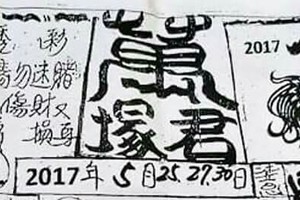 彩
請勿迷賭
傷財又
損尊
塚君
2017
2017年5月25.27.30日